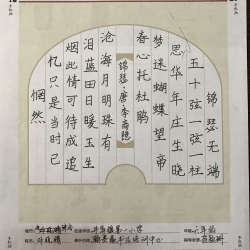 锦瑟无端
五十弦一弦一柱
思华年庄生晓
梦迷蝴蝶望帝
春心托杜鹃
锦瑟·唐·李商隐
沧海月明珠有
泪蓝田日暖玉生
烟此情可待成追
忆只是当时已
惘然
第一小学
六年级